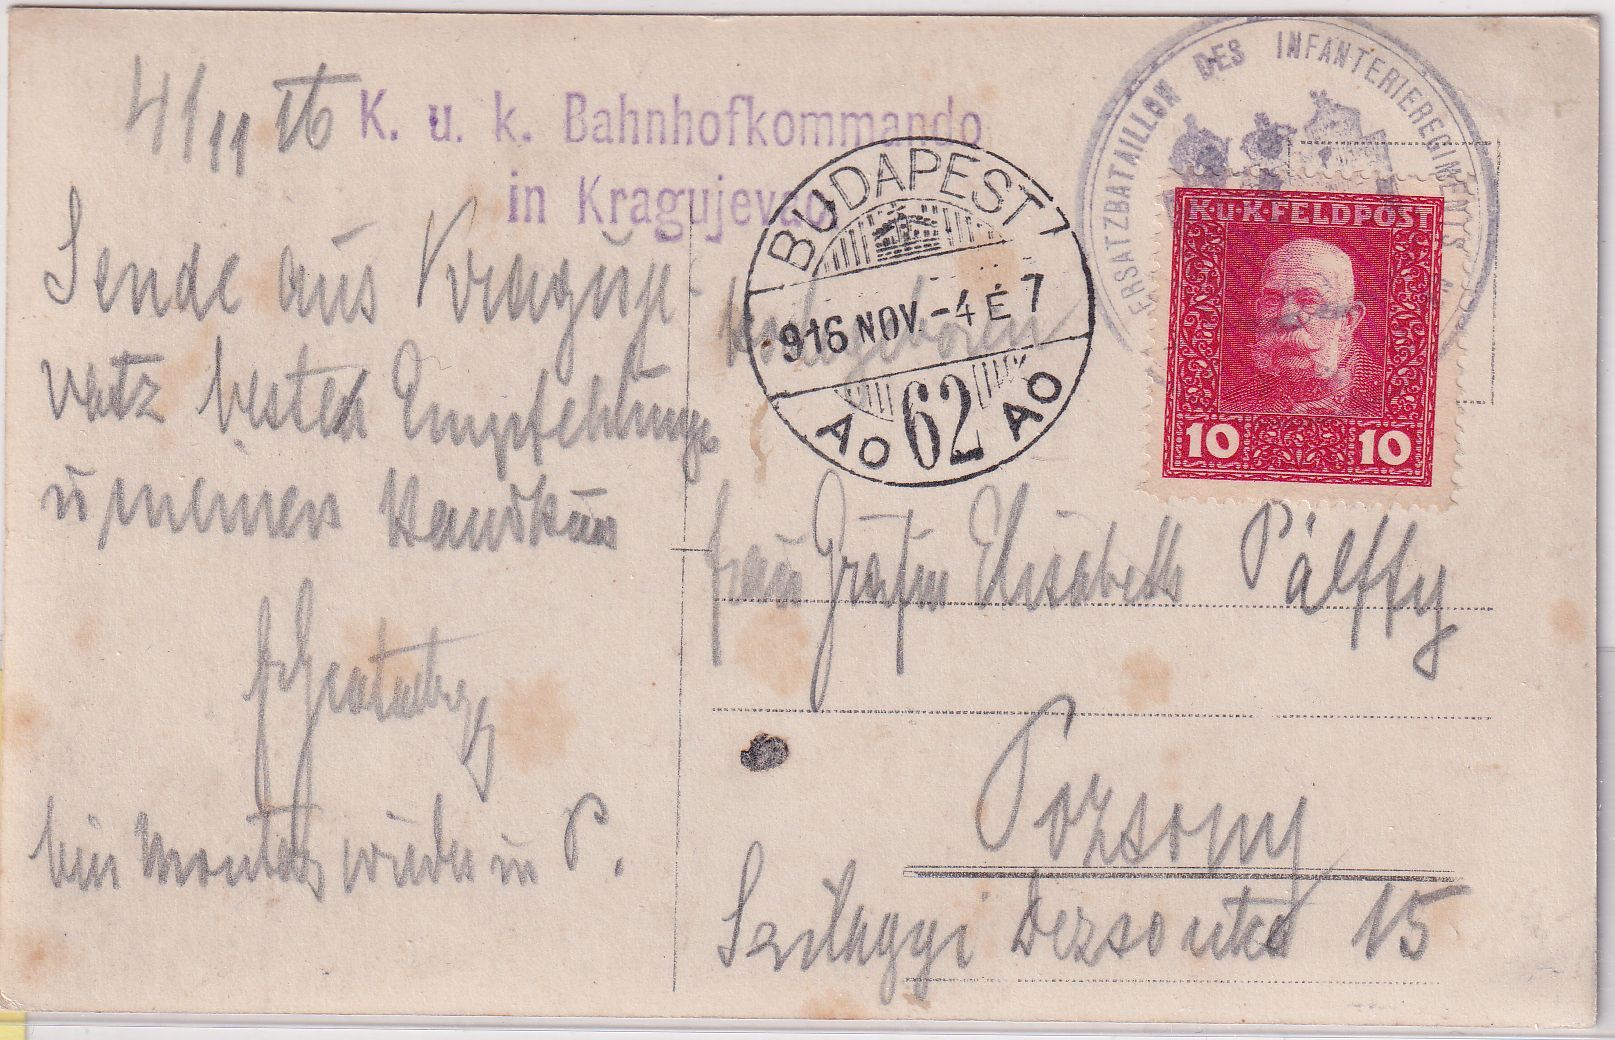 4/11 16
K. u. k. Bahnhofkommando
in Kragujevac
Sende aus Kraguje-
vatz besten Empfehlungen
u meinen Handkuss
bin Montag wieder in P.
ERSATZBATAILLON DES INFANTERIEREGIMENTS
K.u.K.FELDPOST
10 10
BUDAPEST 7
916 NOV.-4 É 7
AO 62 AO
Hochgeboren
Frau Gräfin Elisabeth Pálffy
Pozsony
Szilagyi Dezso utca 15